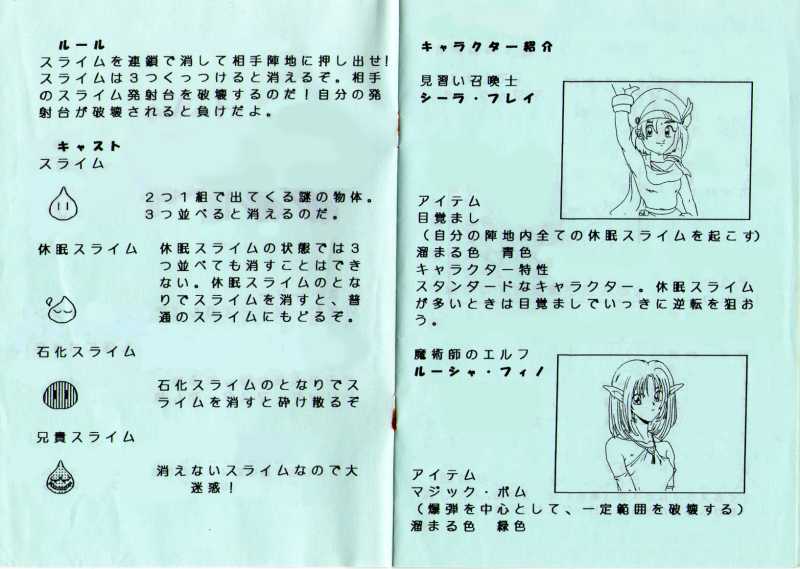 ルール
スライムを連鎖で消して相手陣地に押し出せ!
スライムは3つくっつけると消えるぞ。相手
のスライム発射台を破壊するのだ!自分の発
射台が破壊されると負けだよ。
キャスト
スライム
2つ1組で出てくる謎の物体。
3つ並べると消えるのだ。
休眠スライム 休眠スライムの状態では3
つ並べても消すことはでき
ない。休眠スライムのとな
りでスライムを消すと、普
通のスライムにもどるぞ。
石化スライム
石化スライムのとなりでス
ライムを消すと砕け散るぞ
兄貴スライム
消えないスライムなので大
迷惑!
キャラクター紹介
見習い召喚士
シーラ・フレイ
アイテム
目覚まし
(自分の陣地内全ての休眠スライムを起こす)
溜まる色 青色
キャラクター特性
スタンダードなキャラクター。休眠スライム
が多いときは目覚ましでいっきに逆転を狙お
う。
魔術師のエルフ
ルーシャ・フィノ
アイテム
マジック・ボム
(爆弾を中心として、一定範囲を破壊する)
溜まる色 緑色